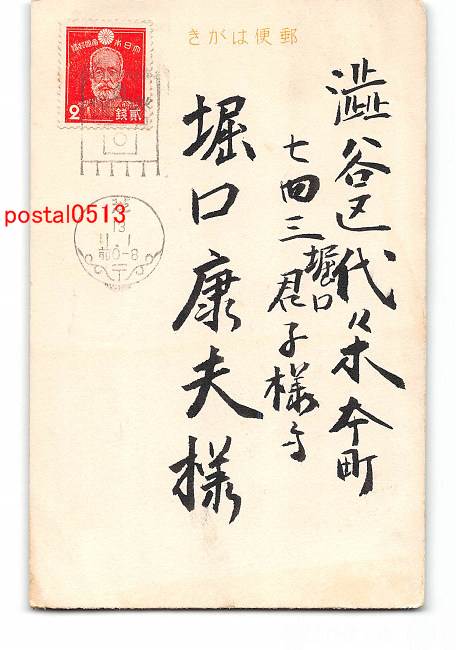 きがは便郵
大日本帝國郵便
2 銭貳
芝
13
11.1
前0-8
〒
澁谷区代々木本町
七四三
堀口君子様方
堀口康夫様
postal0513